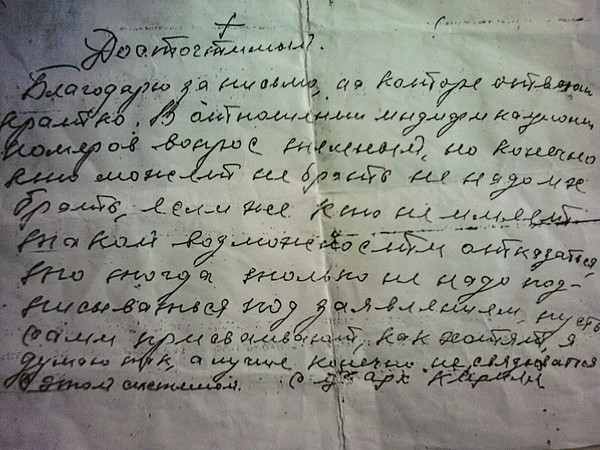 +
Досточтимый.
Благодарю за письмо, на которое отвечаю
кратко. В отношении индификационных
номеров вопрос сложный, но конечно
кто может не брать не надо их
брать, если же кто не имеет
такой возможности отказаться
то тогда только не надо под-
писываться под заявлением, пусть
сами присваивают, как хотят, я
думаю так, а лучше конечно не связываться
с этой системой. С ув. Арх. Кирилл